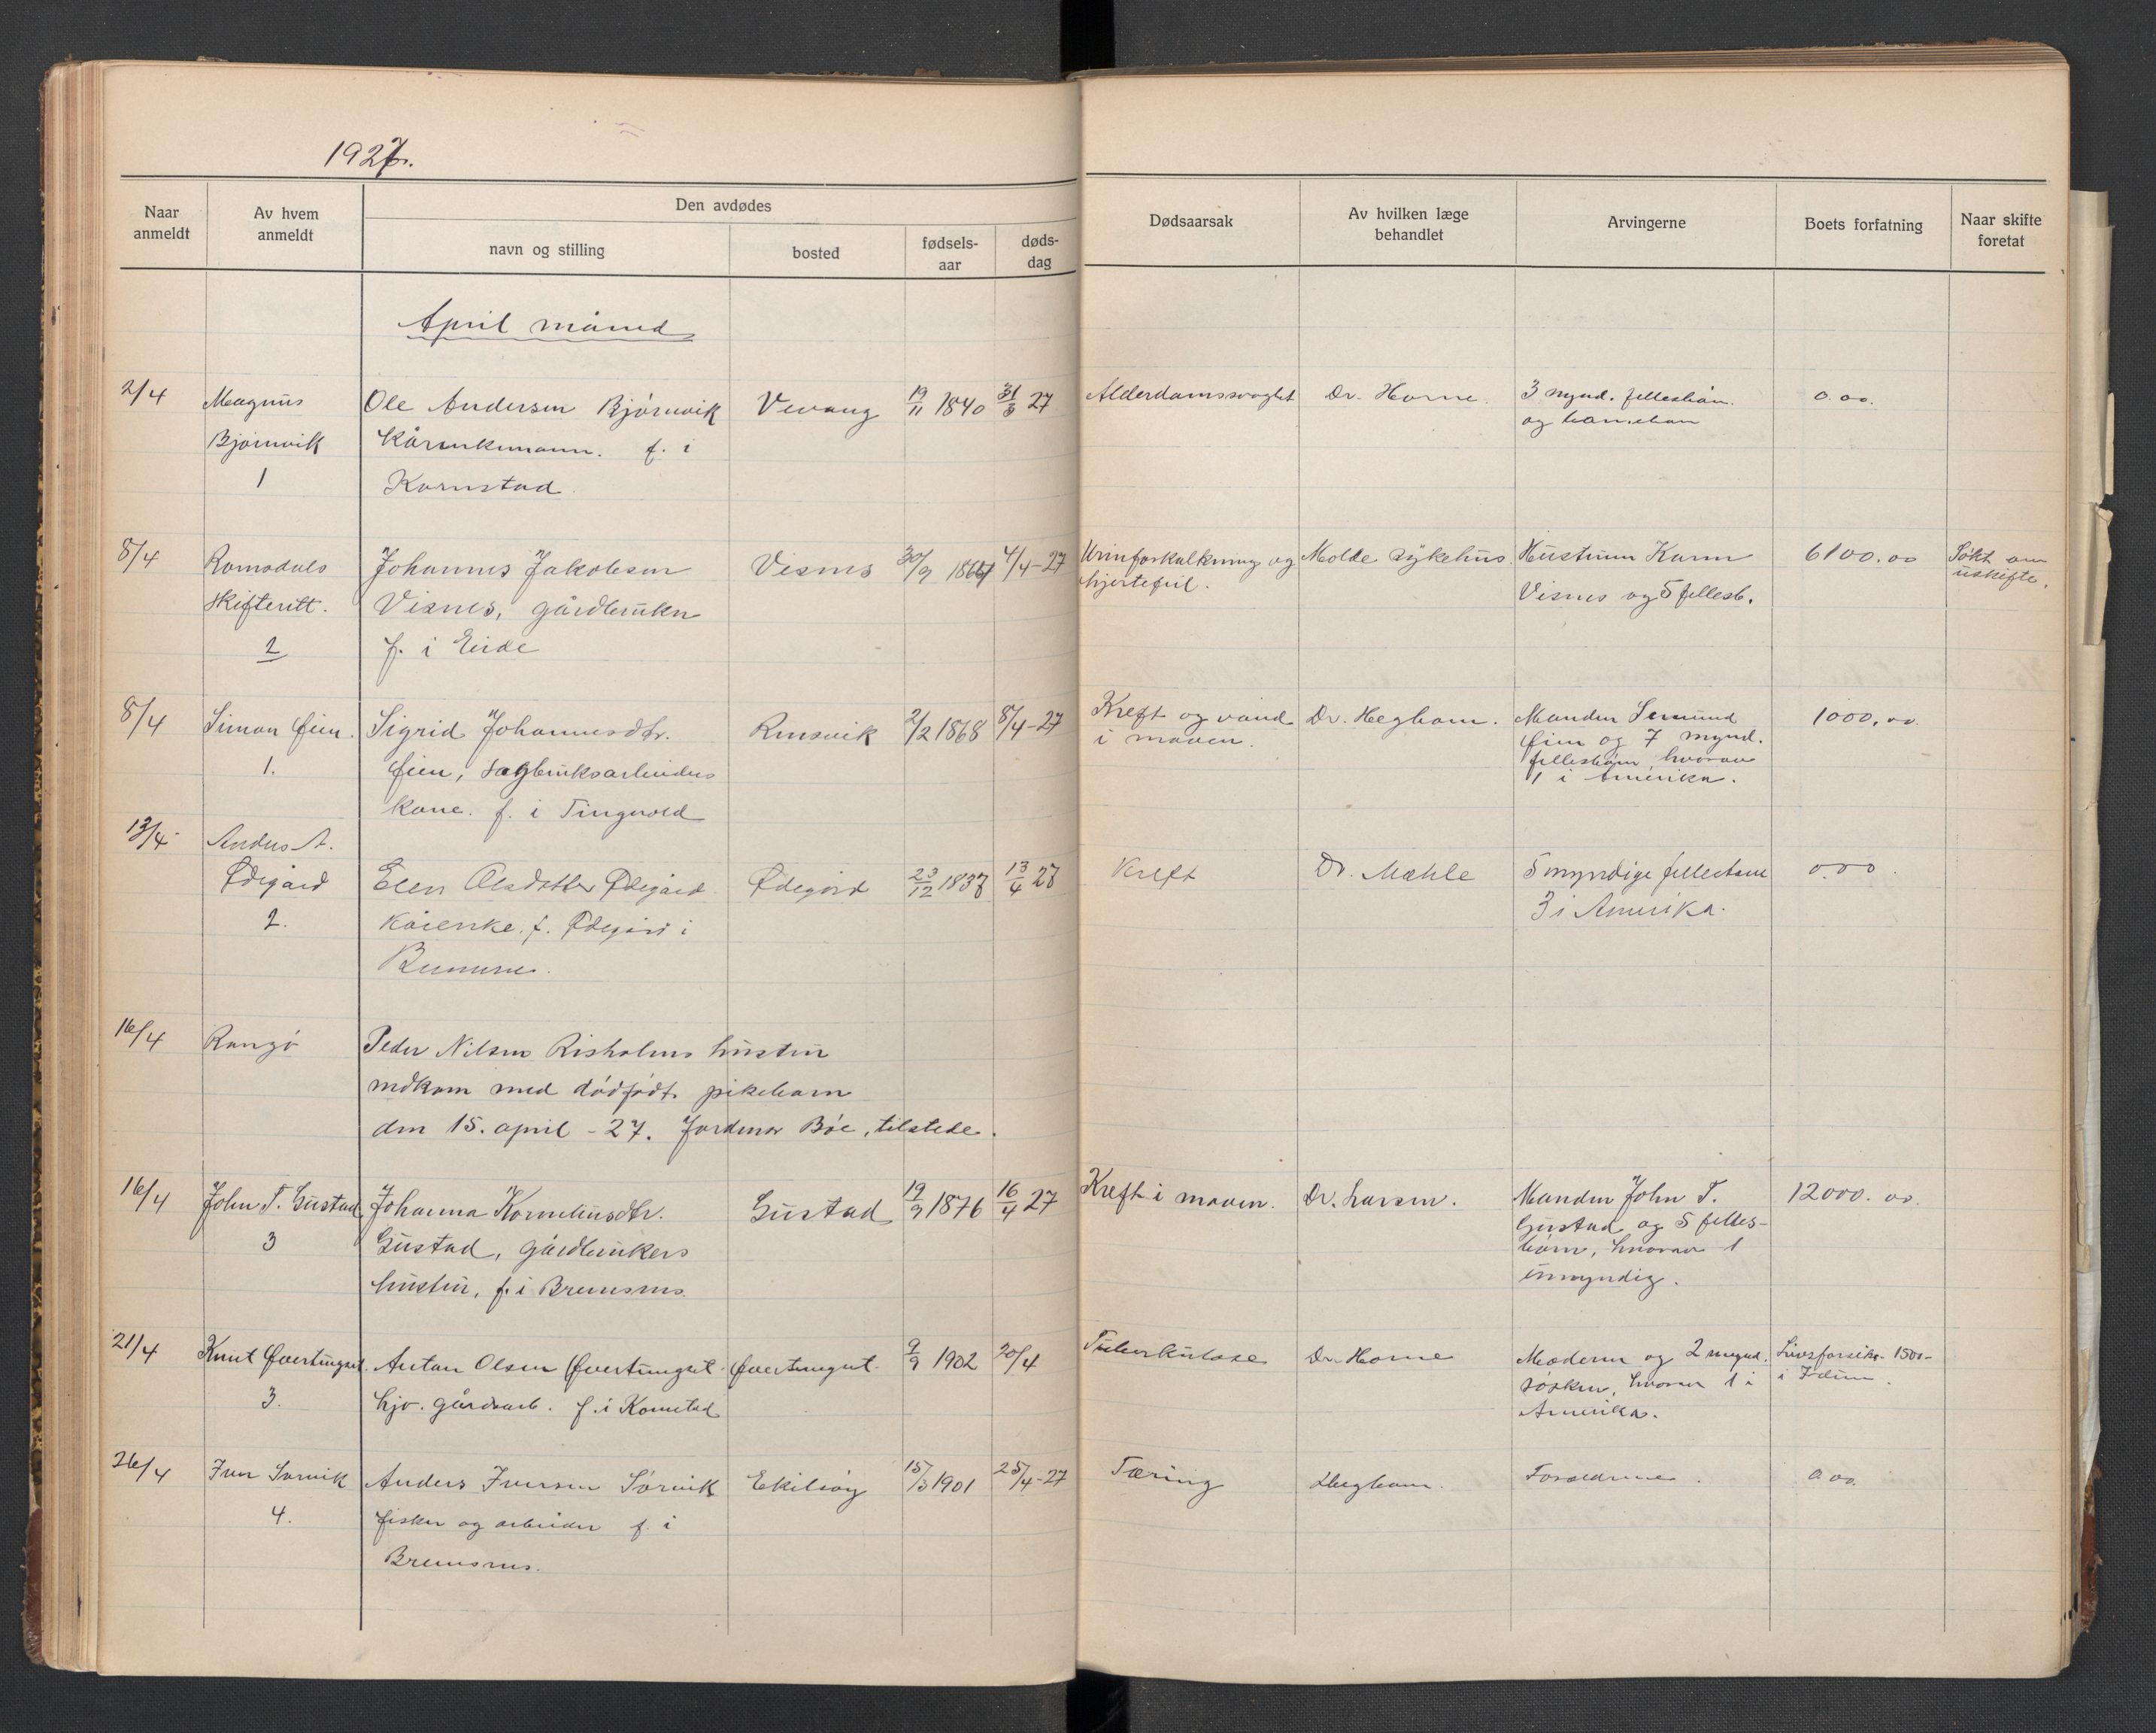 1927.
Naar anmeldt
Av hvem anmeldt
Den avdødes
navn og stilling
bosted
fødsels-aar
døds-dag
Dødsaarsak
Av hvilken læge behandlet
Arvingerne
Boets forfatning
Naar skifte foretat
April måned
2/4 Magnus Ole Andersen Bjørnvik Vevang 19/11 1840 31/3 27 Dr. Horne. 3 mynd. fellesbørn. 0.00.
Bjørnvik Kårenksmann. f. i og
1 Kornstad.
8/4 Romsdals Johannes Jakobsen Visnes 30/9 4/4-27 Urinforkalkning og Molde sykehus. Hustruen Karen 6100.00 Søkt om
skifterett. Visnes, gårdbruker hjertefeil. Visnes og 5 fellesb. uskifte.
2 f. i Eide
8/4 Simon Øien. Sigrid Johannesdtr. Rensvik 2/2 1868 8/4-27 Kreft og vand Dr. Hegbom. Manden 1000.00
1. Øien, sagbruksarbeiders i maven. Øien og 7 mynd.
kone. f. i Tingvold fellesbørn, hvorav
1 i Amerika.
13/4 Anders A.
Ødegård Elen Olsdatter Ødegård Ødegård 23/12 1837 13/4 27 Kreft Dr. Mæhle 5 myndige fellesbarn 0.00.
2. kårenke. f. Ødegård i 3 i Amerika.
16/4 Rangø Peder Nilsen Risholms hustru
nedkom med dødfødt pikebarn
den 15. april - 27. Jordmor Bøe, tilstede.
16/4 John T. Gustad Johanna Korneliusdtr. Gustad 19/9 1876 16/4 27 Kreft i maven. Dr. Larsen. Manden John T. 12000.00.
3 Gustad, gårdbrukers Gustad og 5 felles-
hustru, f. i Bremsnes. børn, hvorav 1
umyndig.
21/4 Knut Øvertungset Anton Olsen Øvertungset. Øvertungset. 9/9 1902 20/4 Tuberkulose Dr. Horne Moderen og 2 mynd. Livsforsikr. 1500-
3. hjv. gårdsarb. f. i Kornstad søsken, hvorav 1 i i Idun.
Amerika.
26/4 Iver Sørvik Anders Iversen Sørvik Ekilsøy 15/3 1901 25/4-27 Tæring Hegbom. Forældrene. 0.00.
4. fisker og arbeider f. i
Bremsnes.